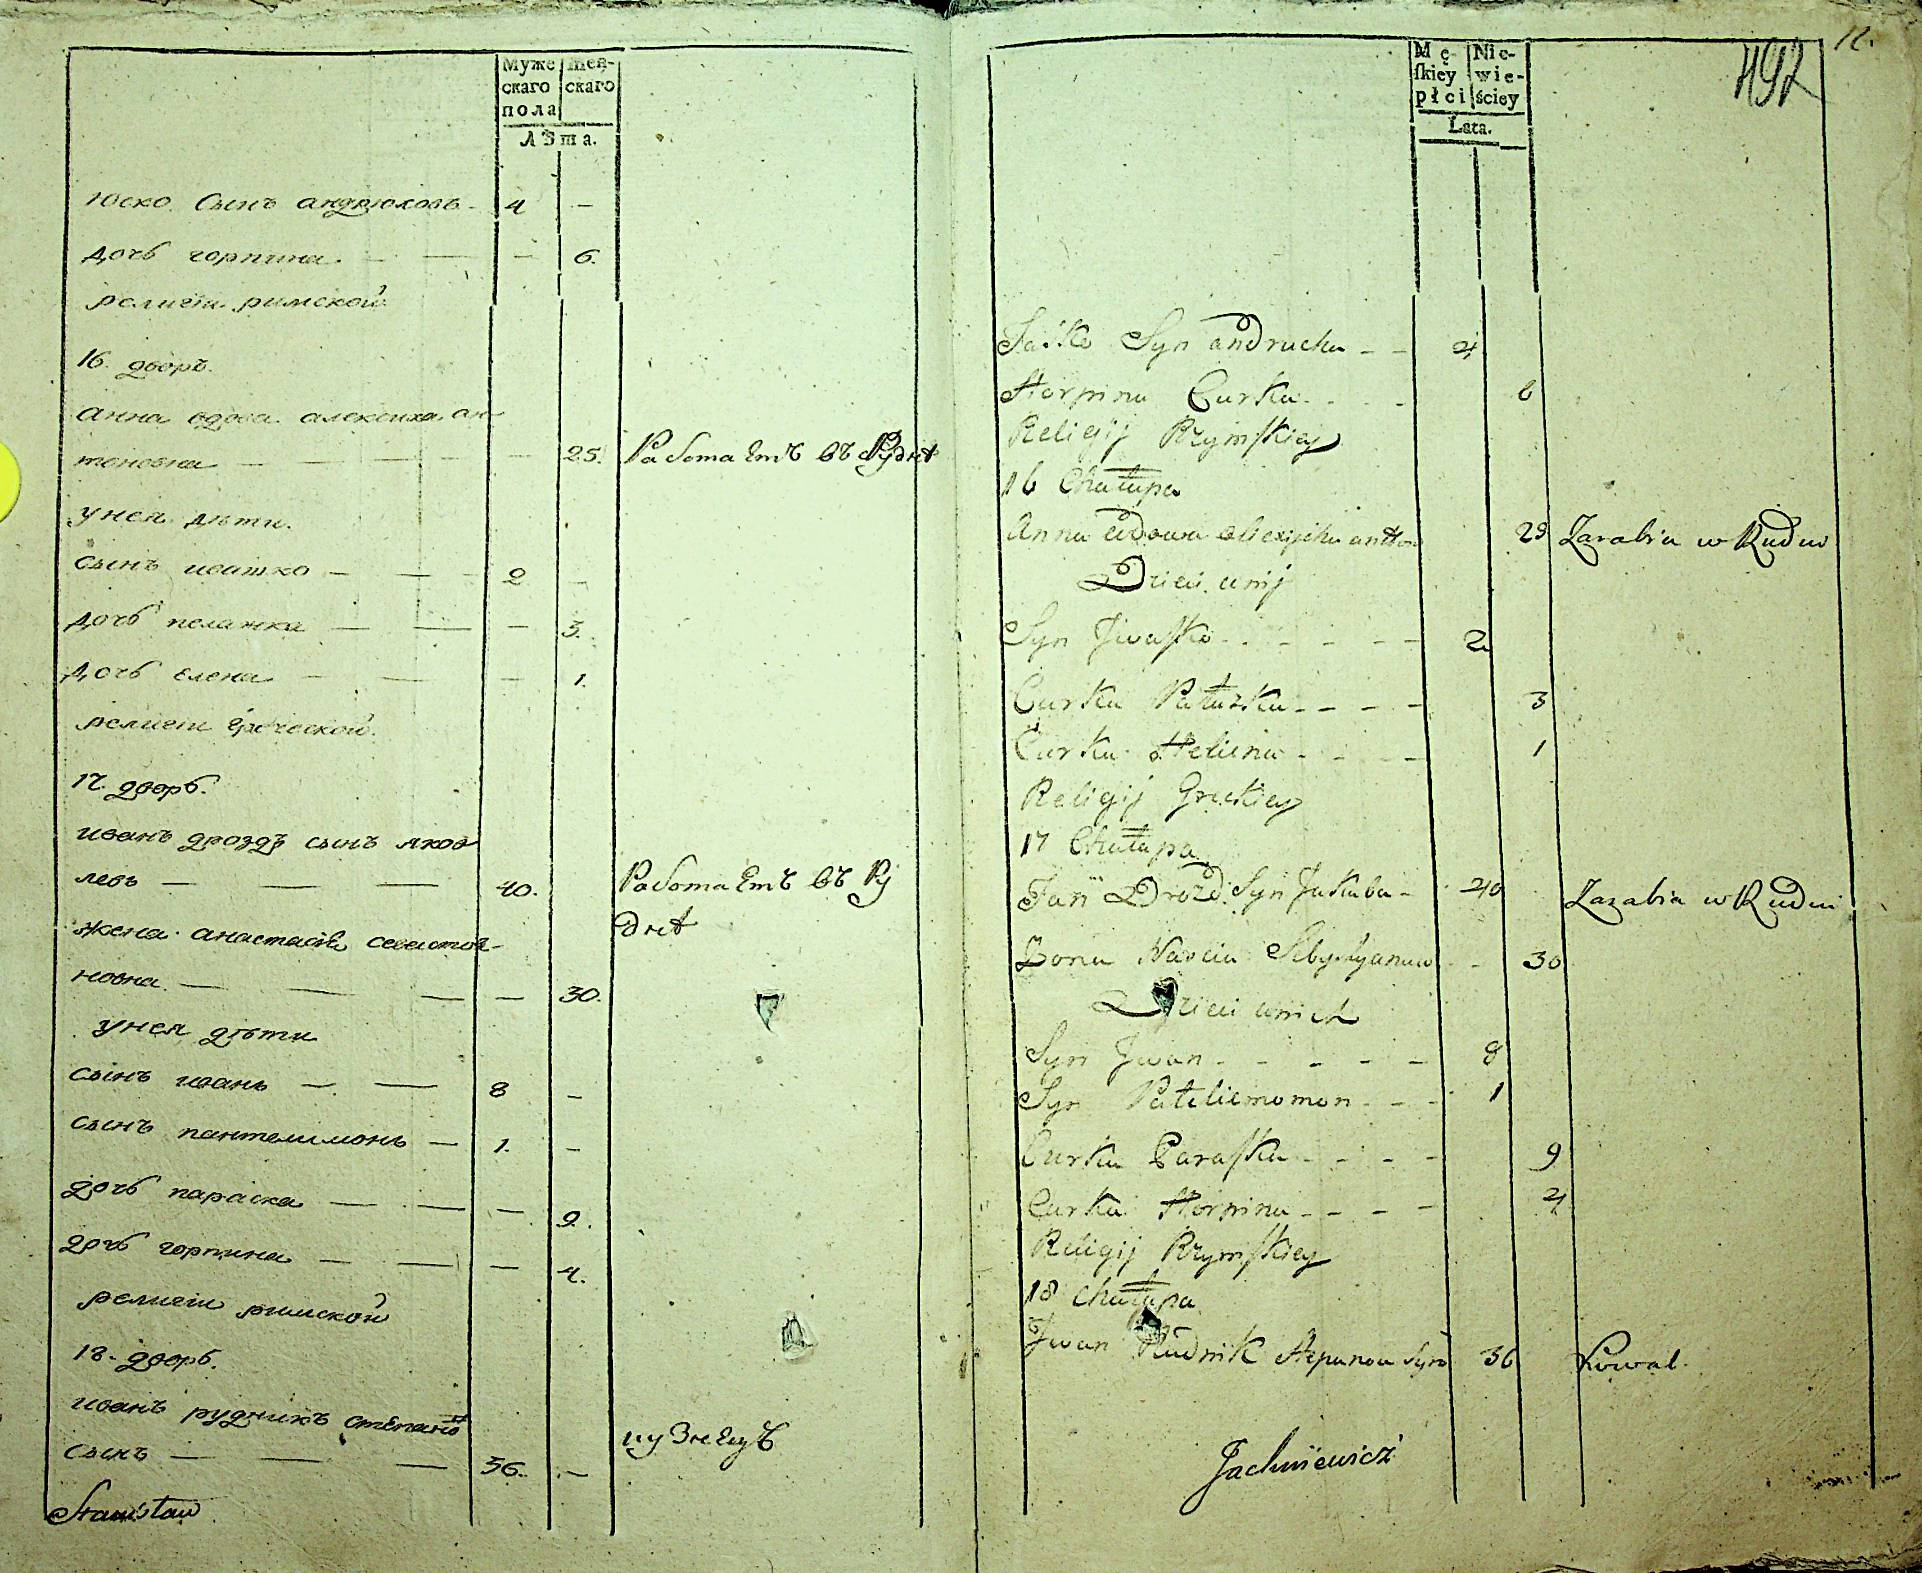 Муже
скаго
пола
Жен-
скаго
Лѣта.
Юско Сынъ андрюховъ 4 —
дочь горпина — — — 6.
религiи римской
16. дворъ.
анна вдова алексиха ан
тоновна — — — — — 25. Работаетъ въ Рудне
унея дѣти.
сынъ ивашко — — — 2 —
дочь пелажка — — — 3.
дочь елена — — — 1.
религiи греческой.
17. дворъ.
иванъ дроздъ сынъ яков
левъ — — — 40. Работаетъ въ Ру
дне
жена анастасiя севастия
новна — — — — 30.
унея дѣти
сынъ иванъ — — 8 —
сынъ пантелимонъ — 1. —
дочь параска — — — 9.
дочь горпина — — — 4.
религiи римской
18. дворъ.
иванъ рудникъ степано
сынъ — — — 36. — кузнецъ
Stanisław
12.
492
Mę-
skiey
płci
Nie-
wie-
ściey
Lata.
Jaśko Syn andrucha – – 4
Horpina Curka – – – 6
Religij Rzymskiey
16 Chałupa
Anna wdowa Alexijcha anton 25 Zarabia w Rudni
Dzieci unij
Syn Jwaśko – – – – – 2
Curka Pałazka – – – – 3
Curka Helena – – – – 1
Religij Greckiey
17 Chałupa
Jan Drozd Syn Jakuba – 40 Zarabia w Rudni
Żona Nascia Sebestyanow – – 30
Dzieci unich
Syn Jwan – – – – – 8
Syn Pateliemomon – – – 1
Curka Paraska – – – – 9
Curka Horpina – – – – 4
Religij Rzymskiey
18 Chałupa
Jwan Rudnik Stepanow Syn 36 Kowal.
Jachniewicz